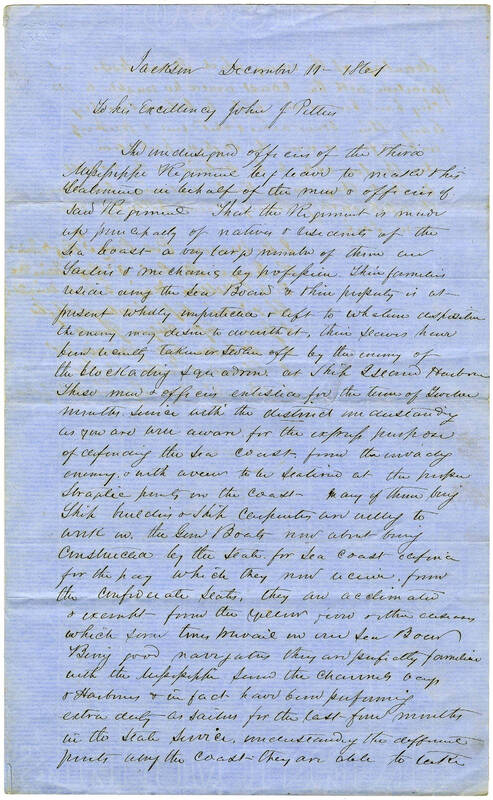 Jackson December 11 - 1861
To his Excellency John J Pettus
The undersigned officers of the third
Mississippi Regiment beg leave to make this
Statement in behalf of the men & officers of
said Regiment That the Regiment is made
up principally of natives & of the
Sea Coast a very large number of them are
Sailors & mechanics by profession Their families
reside along the Sea Board & their property is at
present wholly unprotected & left to whatever disposition
the enemy may desire to with it, their slaves have
been recently taken or stolen off by the enemy of
the blockading squadron at Ship Island Harbour
These men & officers enlisted for the term of Twelve
months service with the distinct understanding
as you are well aware for the express purpose
of defending the Sea Coast from the invading
enemy, & with a view to be stationed at the proper
Strategic points on the coast Many of them being
Ship builders & Ship Carpenters are willing to
work on the Gun Boats now about being
Constructed by the State for Sea Coast defence
for the pay which they now receive from
the Confederate States, they are acclimated
& exempt from the yellow fever & other diseases
which some times prevail on our Sea Board
Being good navigators they are perfectly familiar
with the Mississippi Sound the channels bays
& Harbours & in fact have been performing
extra duty as sailors for the last four months
in the State Service, understanding the different
points along the coast they are able to